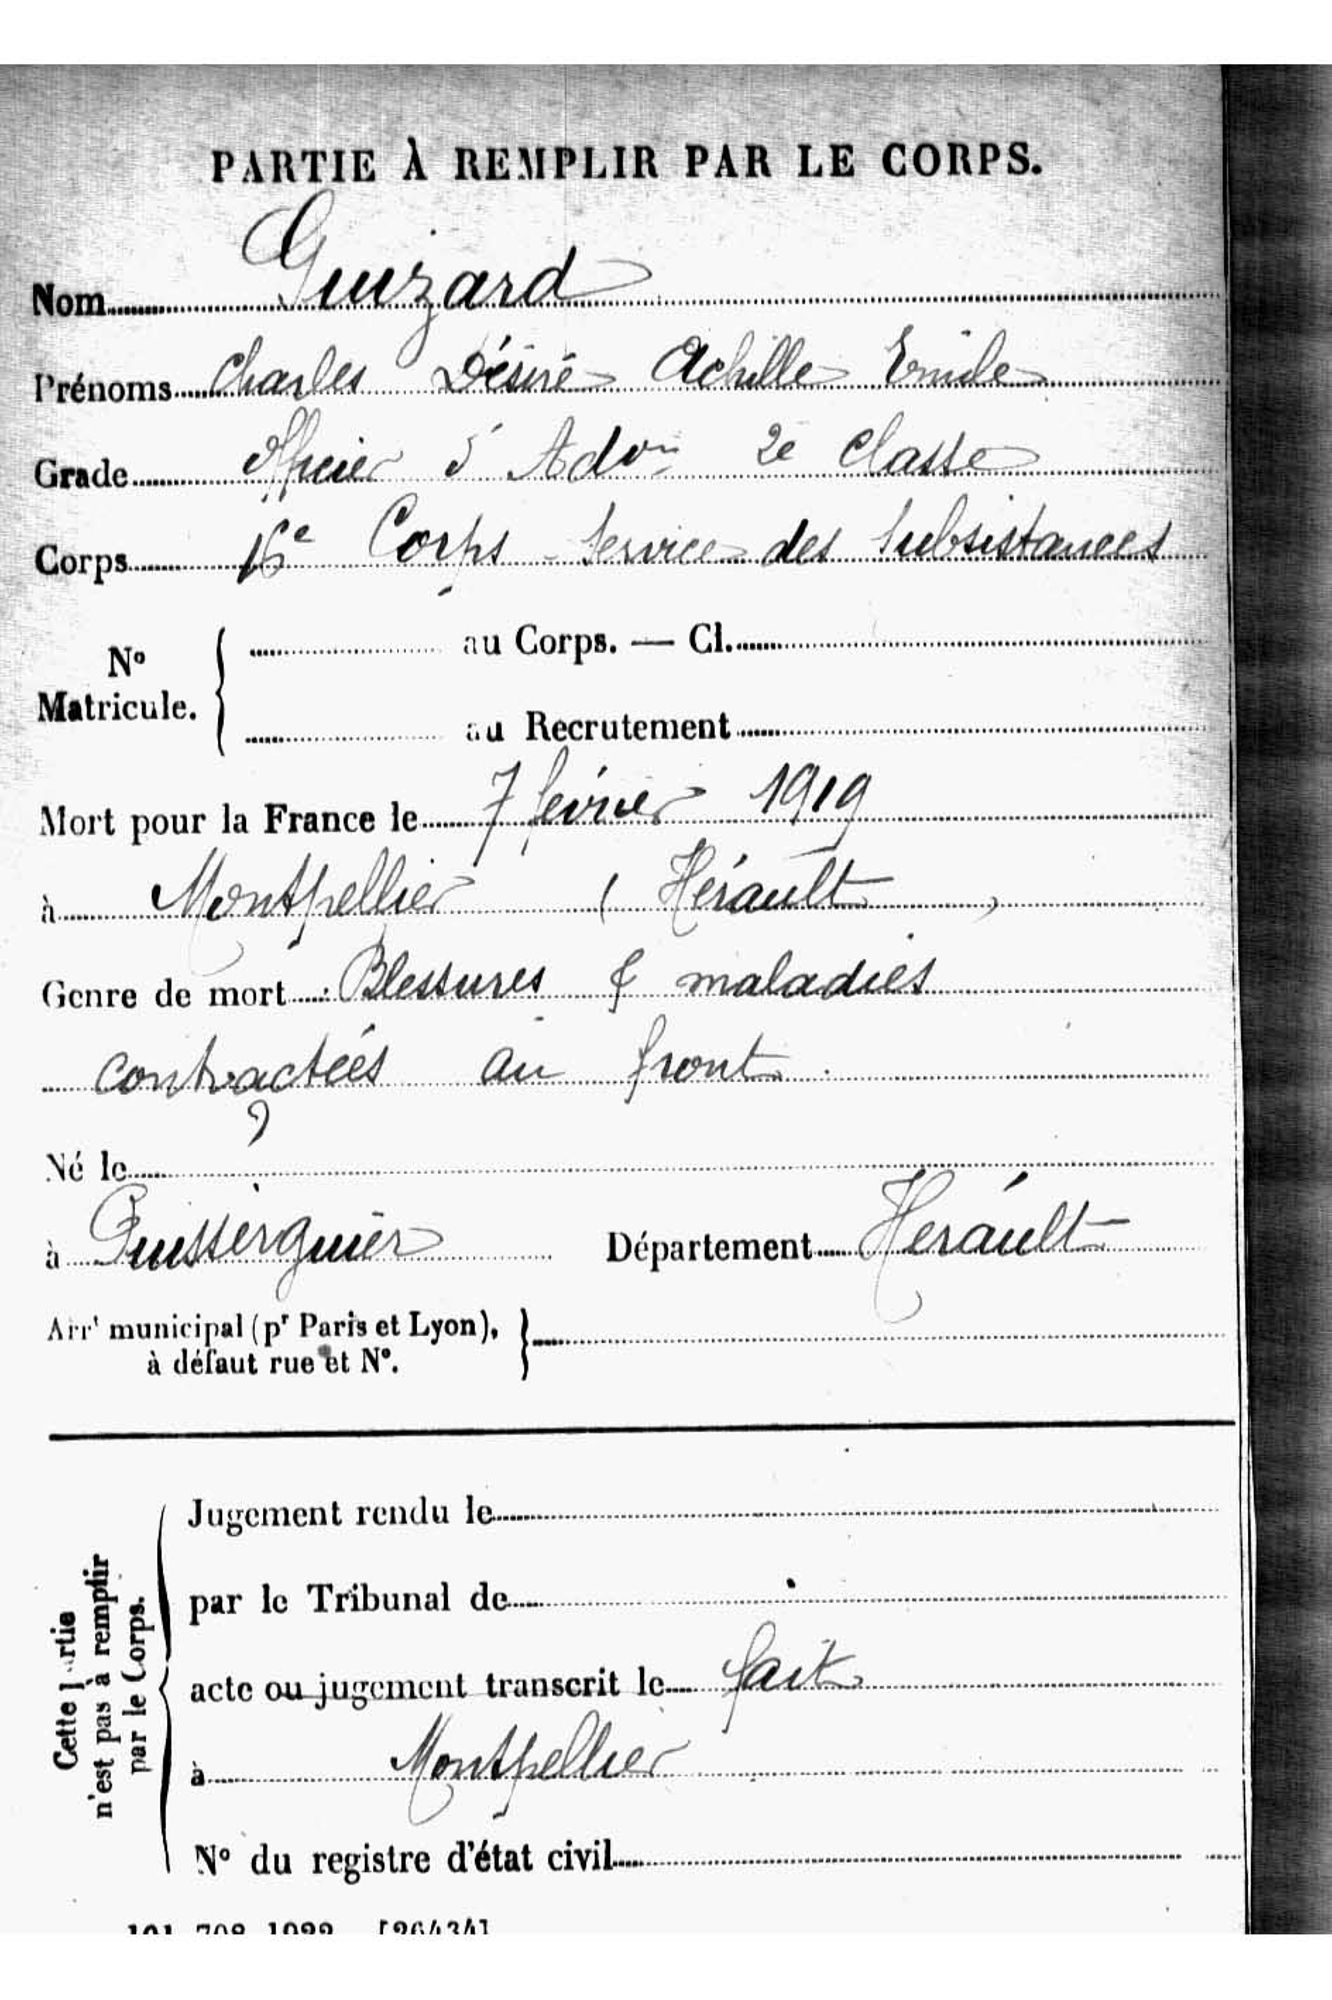 PARTIE À REMPLIR PAR LE CORPS.
Nom Guizard
Prénoms Charles Désiré Achille Emile
Grade officier d' Adon 2e Classe
Corps 16e Corps - Service des Subsistances
No Matricule. { au Corps. — Cl.
au Recrutement
Mort pour la France le 7 février 1919
à Montpellier (Hérault)
Genre de mort : Blessures & maladies
contractées au front.
Né le
à Puisserguier Département Hérault
Arrt municipal (pr Paris et Lyon),
à défaut rue et No. }
Cette partie
n'est pas à remplir
par le Corps.
Jugement rendu le
par le Tribunal de
acte ou jugement transcrit le fait
à Montpellier
No du registre d'état civil
101 708 1922 [26434]